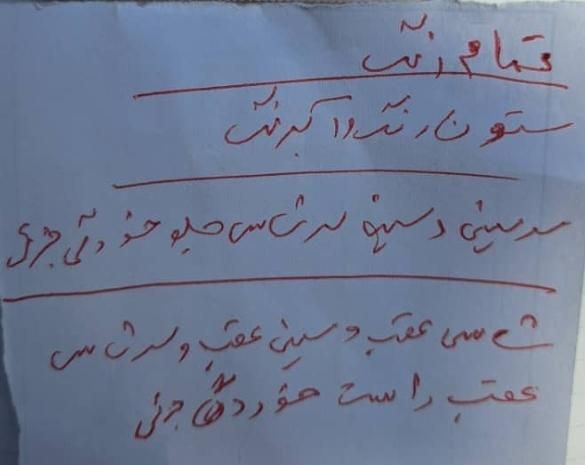 تمام رنگ
ستون رنگ و اکبرنگ
سرسینی و سینی سرشاسی جلو خوردگی جزئی
شاسی عقب و سینی عقب و سرشاسی
عقب راست خوردگی جزئی